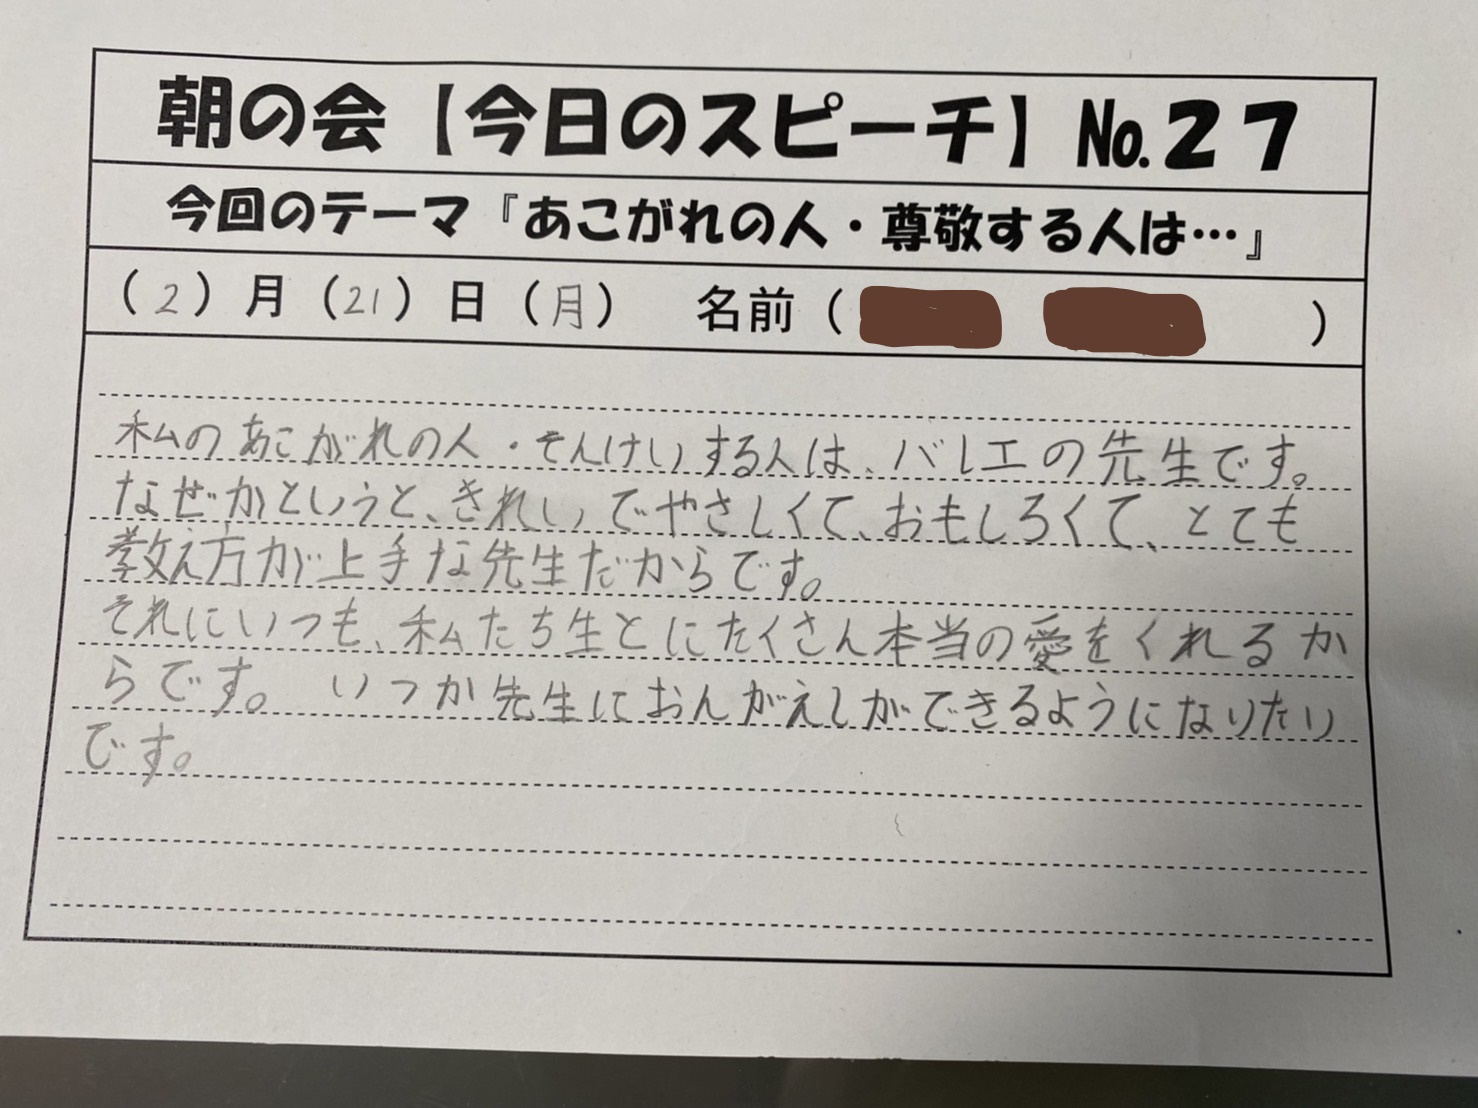 朝の会【今日のスピーチ】№27
今回のテーマ『あこがれの人・尊敬する人は…』
（2）月（21）日（月）　名前（　　　）
私のあこがれの人・そんけいする人は、バレエの先生です。
なぜかというと、きれいでやさしくて、おもしろくて、とても
教え方が上手な先生だからです。
それにいつも、私たち生とにたくさん本当の愛をくれるか
らです。　いつか先生におんがえしができるようになりたい
です。